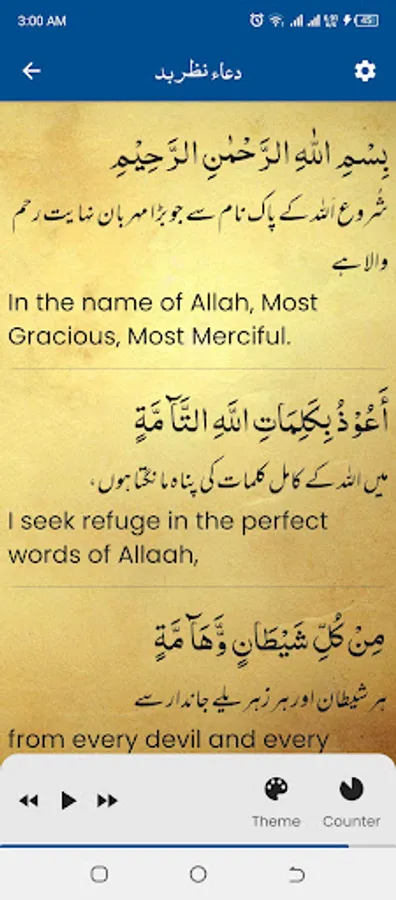 3:00 AM
45
دعاء نظر بد
بِسْمِ اللهِ الرَّحْمٰنِ الرَّحِيْمِ
شروع اللہ کے پاک نام سے جو بڑا مہربان نہایت رحم
والا ہے
In the name of Allah, Most
Gracious, Most Merciful.
أَعُوْذُ بِكَلِمَاتِ اللَّهِ التَّآمَّةِ
میں اللہ کے کامل کلمات کی پناہ مانگتا ہوں،
I seek refuge in the perfect
words of Allaah,
مِنْ كُلِّ شَيْطَانٍ وَّهَآمَّةٍ
ہر شیطان اور ہر زہریلے جاندار سے
from every devil and every
Theme
Counter